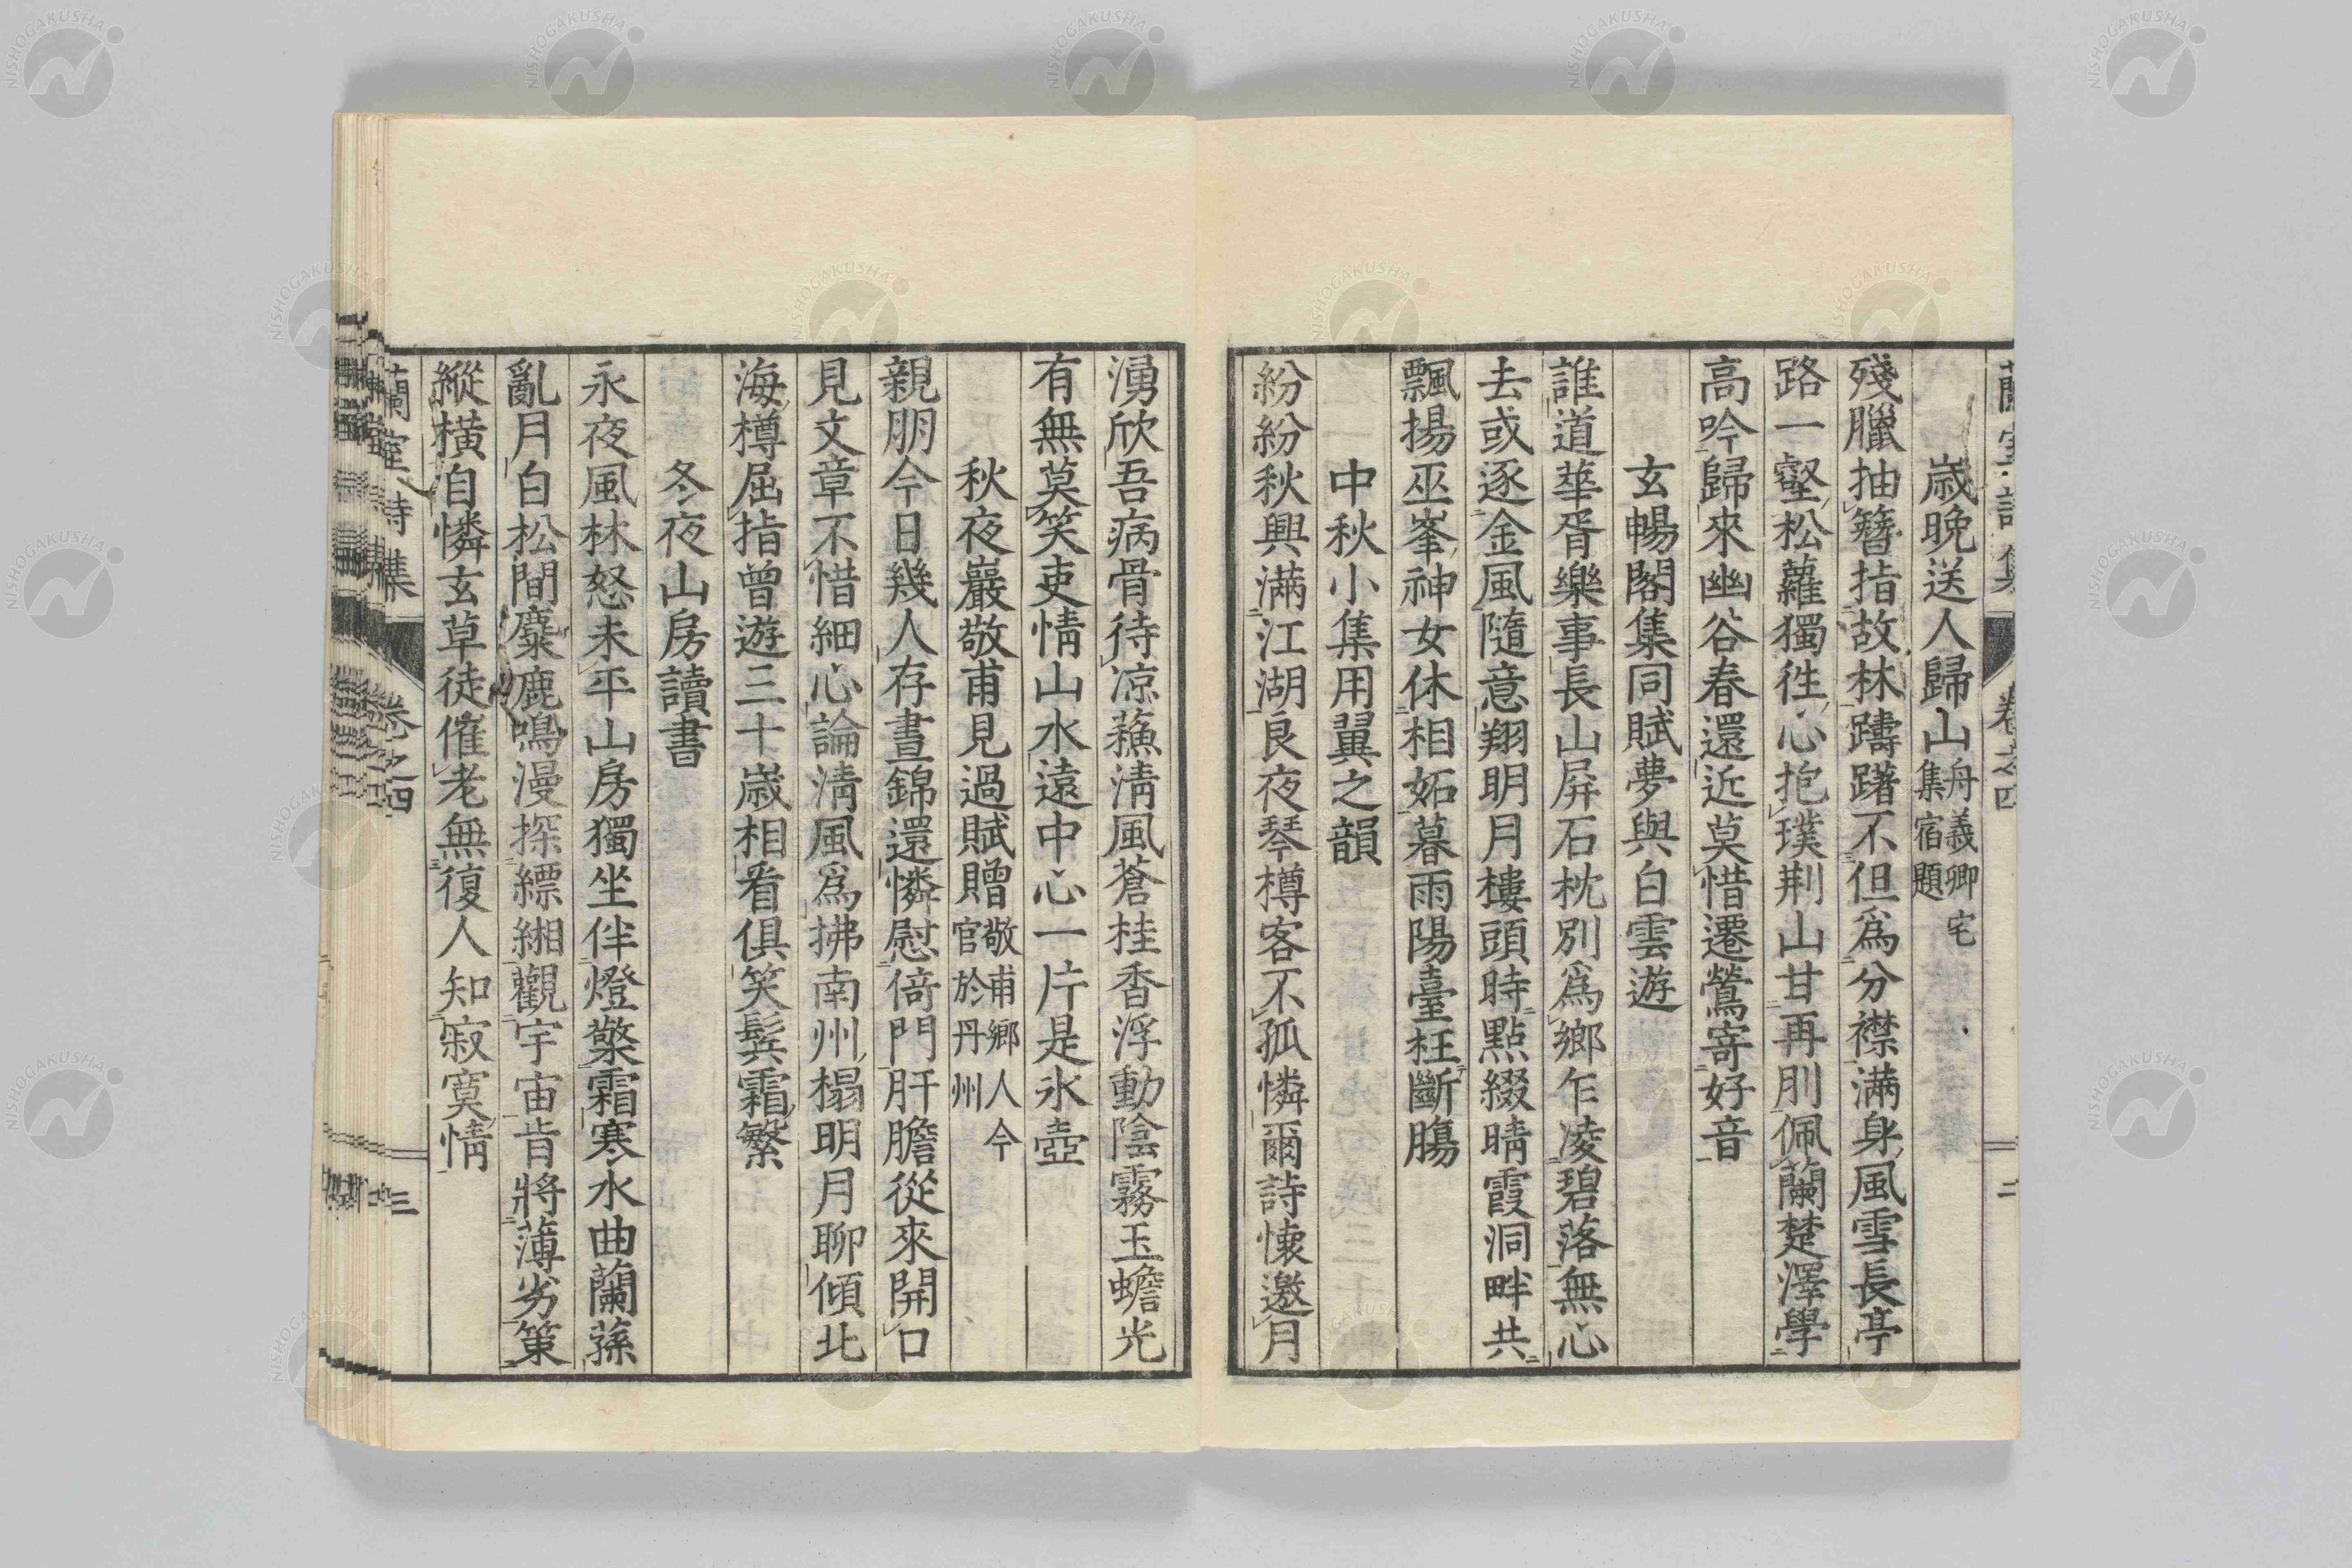 蘭室詩集　卷之四　二
歳晚送人歸山舟義卿宅集宿題
殘臘抽簪指故林躊躇不但爲分襟滿身風雪長亭
路一壑松蘿獨徃心抱璞荆山甘再刖佩蘭楚澤學
高吟歸來幽谷春還近莫惜遷鶯寄好音
玄暢閣集同賦夢與白雲遊
誰道華胥樂事長山屏石枕別爲鄉乍凌碧落無心
去或逐金風隨意翔明月樓頭時點綴晴霞洞畔共
飄揚巫峯神女休相妬暮雨陽臺枉斷膓
中秋小集用翼之韻
紛紛秋興滿江湖良夜琴樽客不孤憐爾詩懷邀月
湧欣吾病骨待凉蘓淸風蒼桂香浮動陰霧玉蟾光
有無莫笑吏情山水遠中心一片是氷壺
秋夜巖敬甫見過賦贈敬甫鄉人今官於丹州
親朋今日幾人存晝錦還憐慰倚門肝膽從來開口
見文章不惜細心論淸風爲拂南州榻明月聊傾北
海樽屈指曾遊三十歳相看俱笑鬂霜繁
冬夜山房讀書
永夜風林怒未平山房獨坐伴燈檠霜寒水曲蘭蓀
亂月白松間麋鹿鳴漫探縹緗觀宇宙肯將薄劣策
縱横自憐玄草徒催老無復人知寂寞情
蘭室詩集　卷之四　三
NISHOGAKUSHA